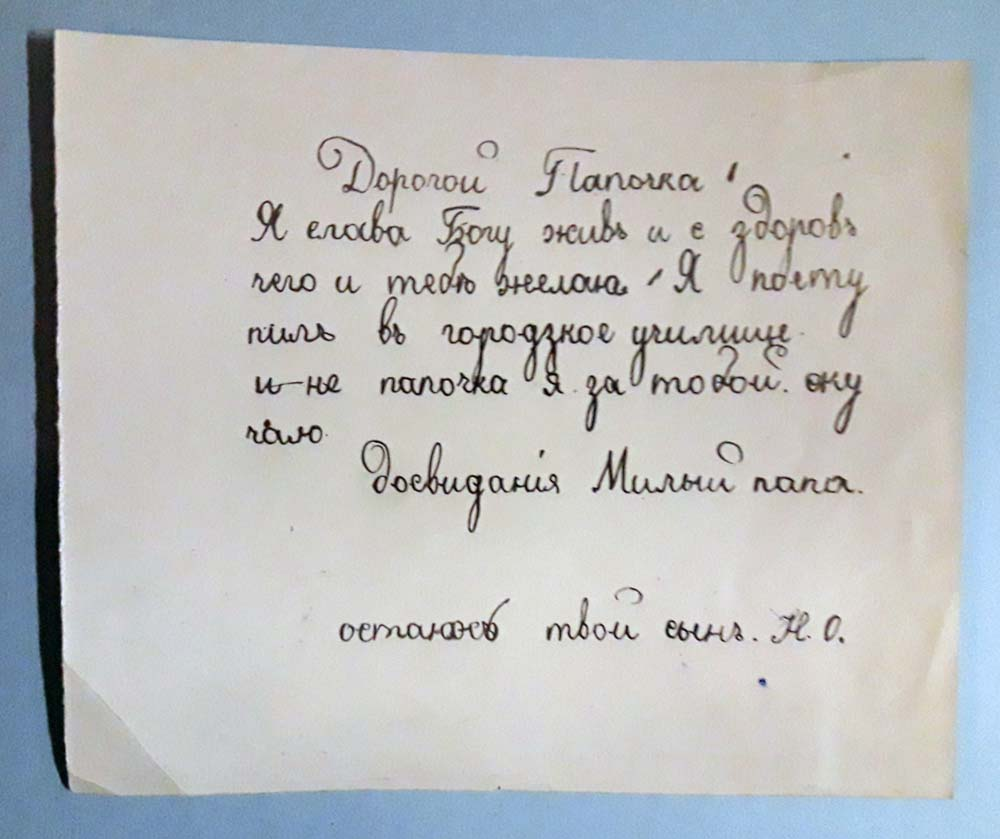 Дорогой Папочка!
Я слава Богу живъ и с здоровъ
чего и тебѣ желаю! Я посту
пилъ въ городзкое училище.
и не папочка я за тобой ску
чаю.
Досвиданія Милый папа.
остаюсь твой сынъ. Н. О.